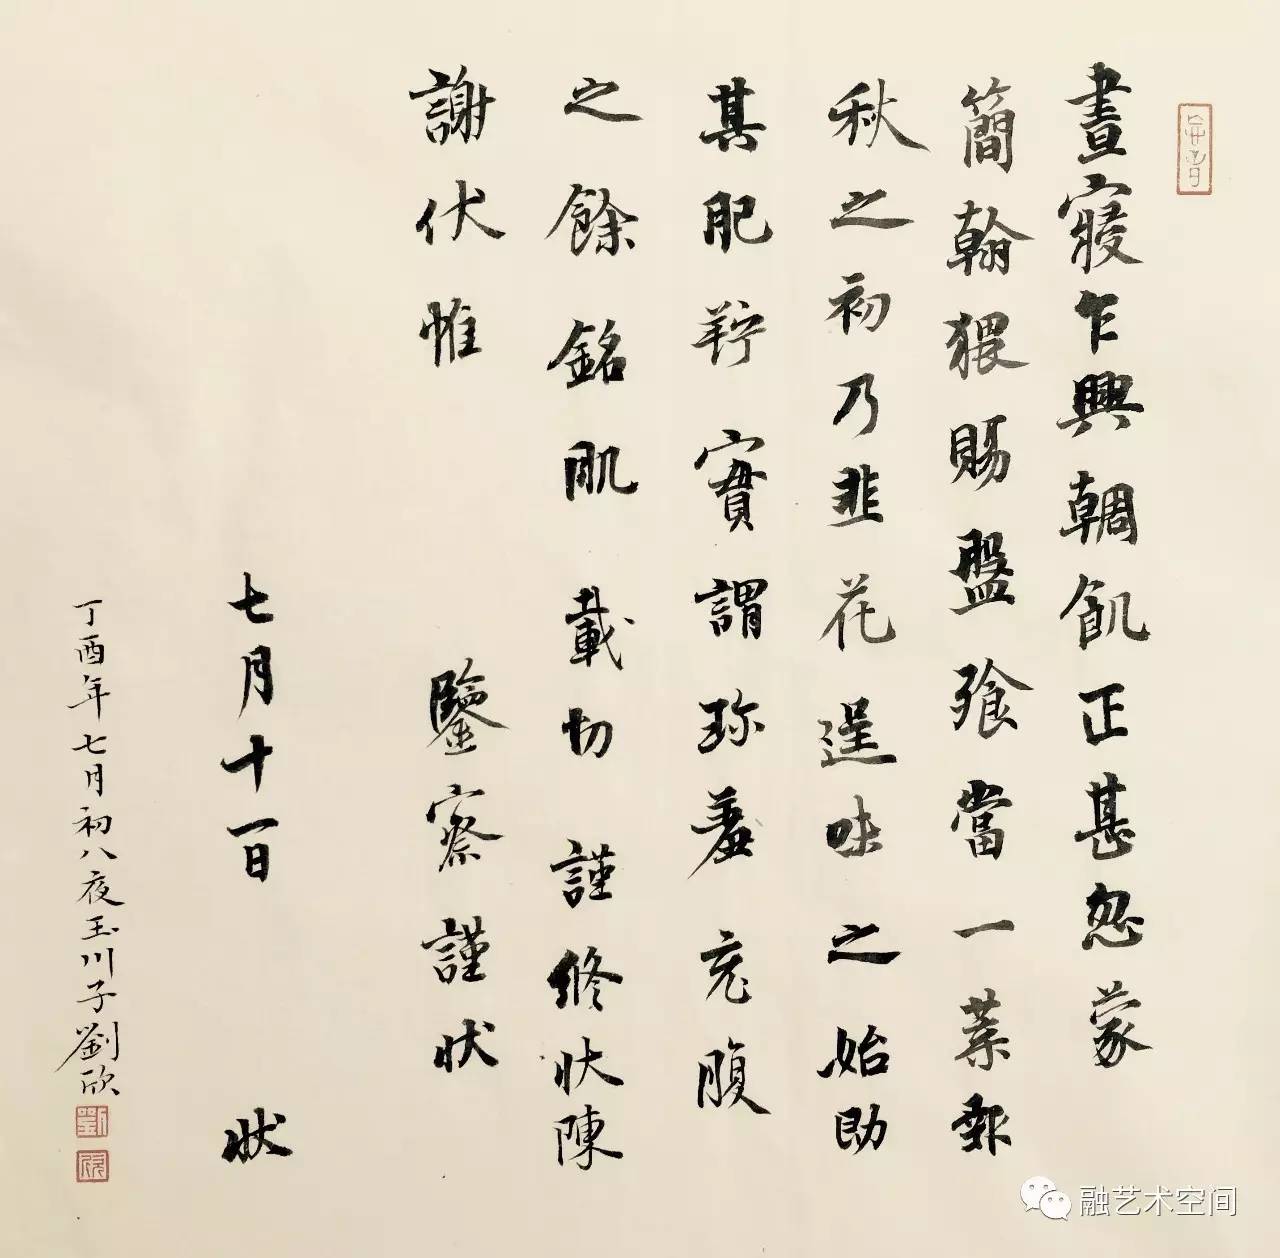 晝寢乍興輖飢正甚忽蒙
簡翰猥賜盤飧當一葉報
秋之初乃韭花逞味之始助
其肥羜實謂珍羞充腹
之餘銘肌載切謹修狀陳
謝伏惟
鑒察謹狀
七月十一日
狀
丁酉年七月初八夜玉川子劉欣
融艺术空间